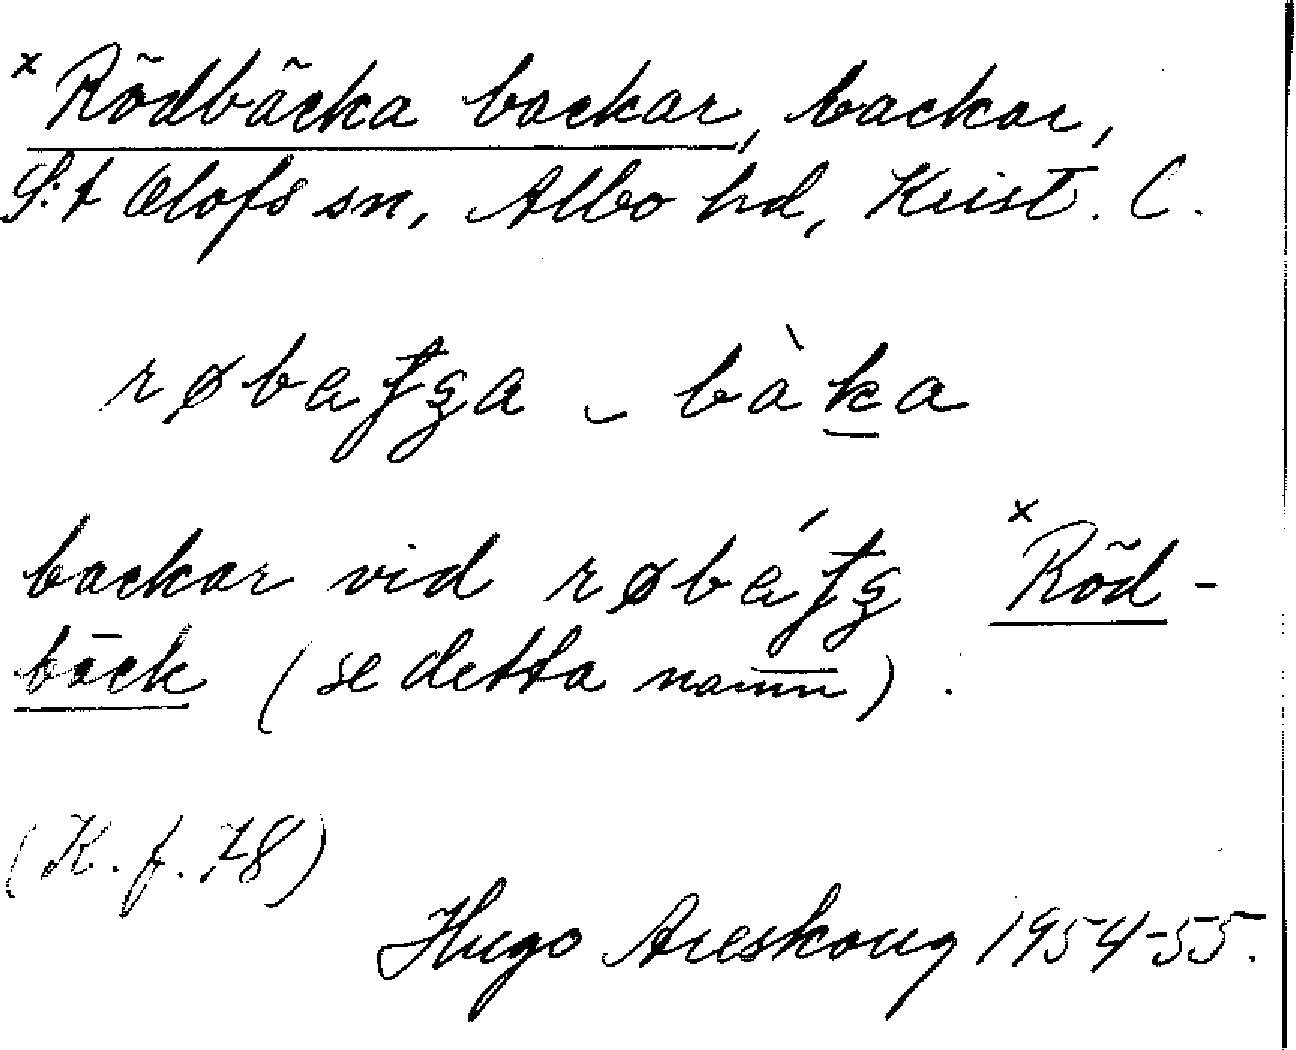 x Rödbäcka backar, backar,
S:t Olofs sn, Albo hd, Krist. l.
røbaƭga ‿ bàka
backar vid røbáƭg x Röd-
bäck (se detta namn).
(K. f. 78)
Hugo Areskoug 1954-55.